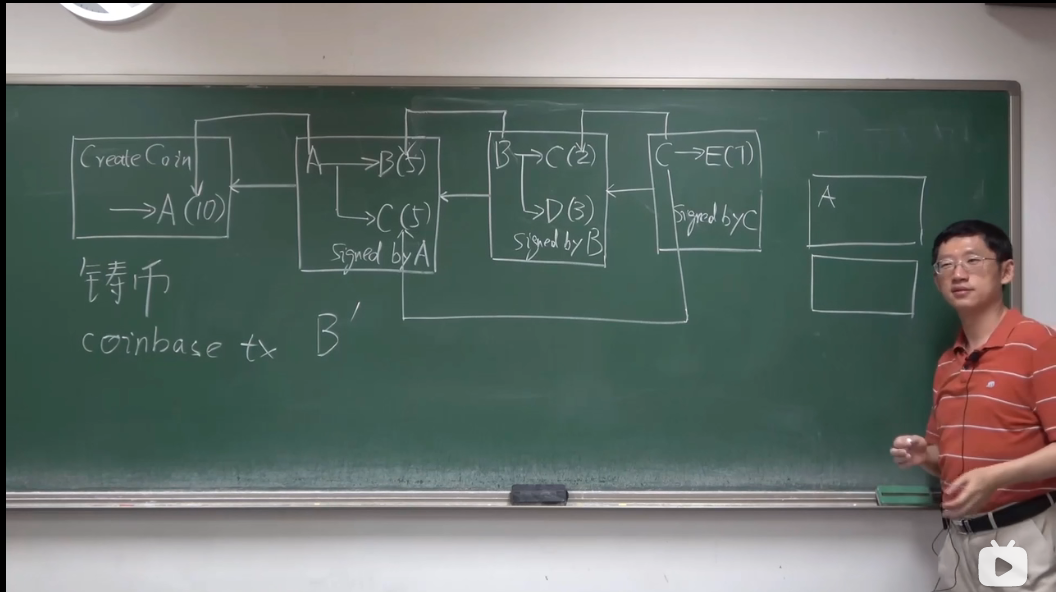 Create Coin
→A(10)
A→B(5)
→C(5)
signed by A
B→C(2)
→D(3)
signed by B
C→E(7)
signed by C
A
铸币
coinbase tx
B′